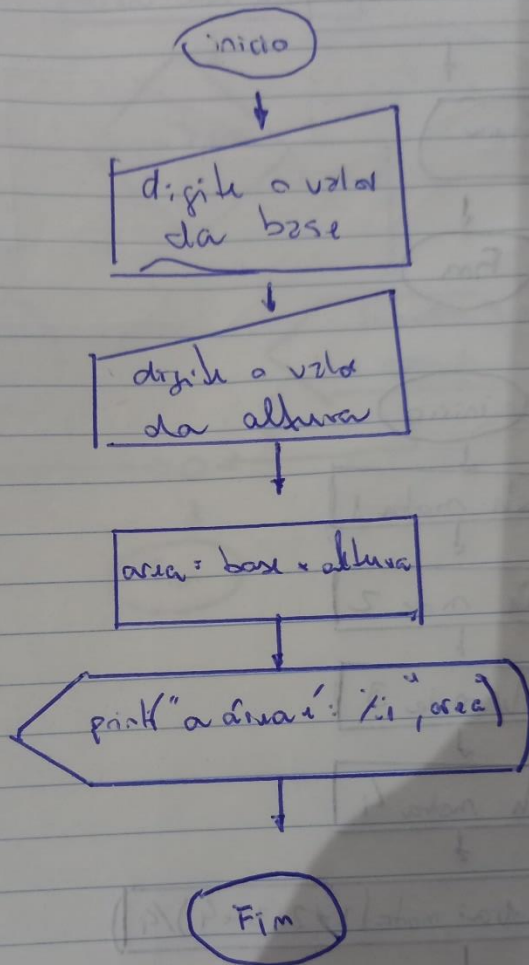 inicio
digite o valor
da base
digite o valor
da altura
area = base * altura
print("a área é: %i", area)
Fim